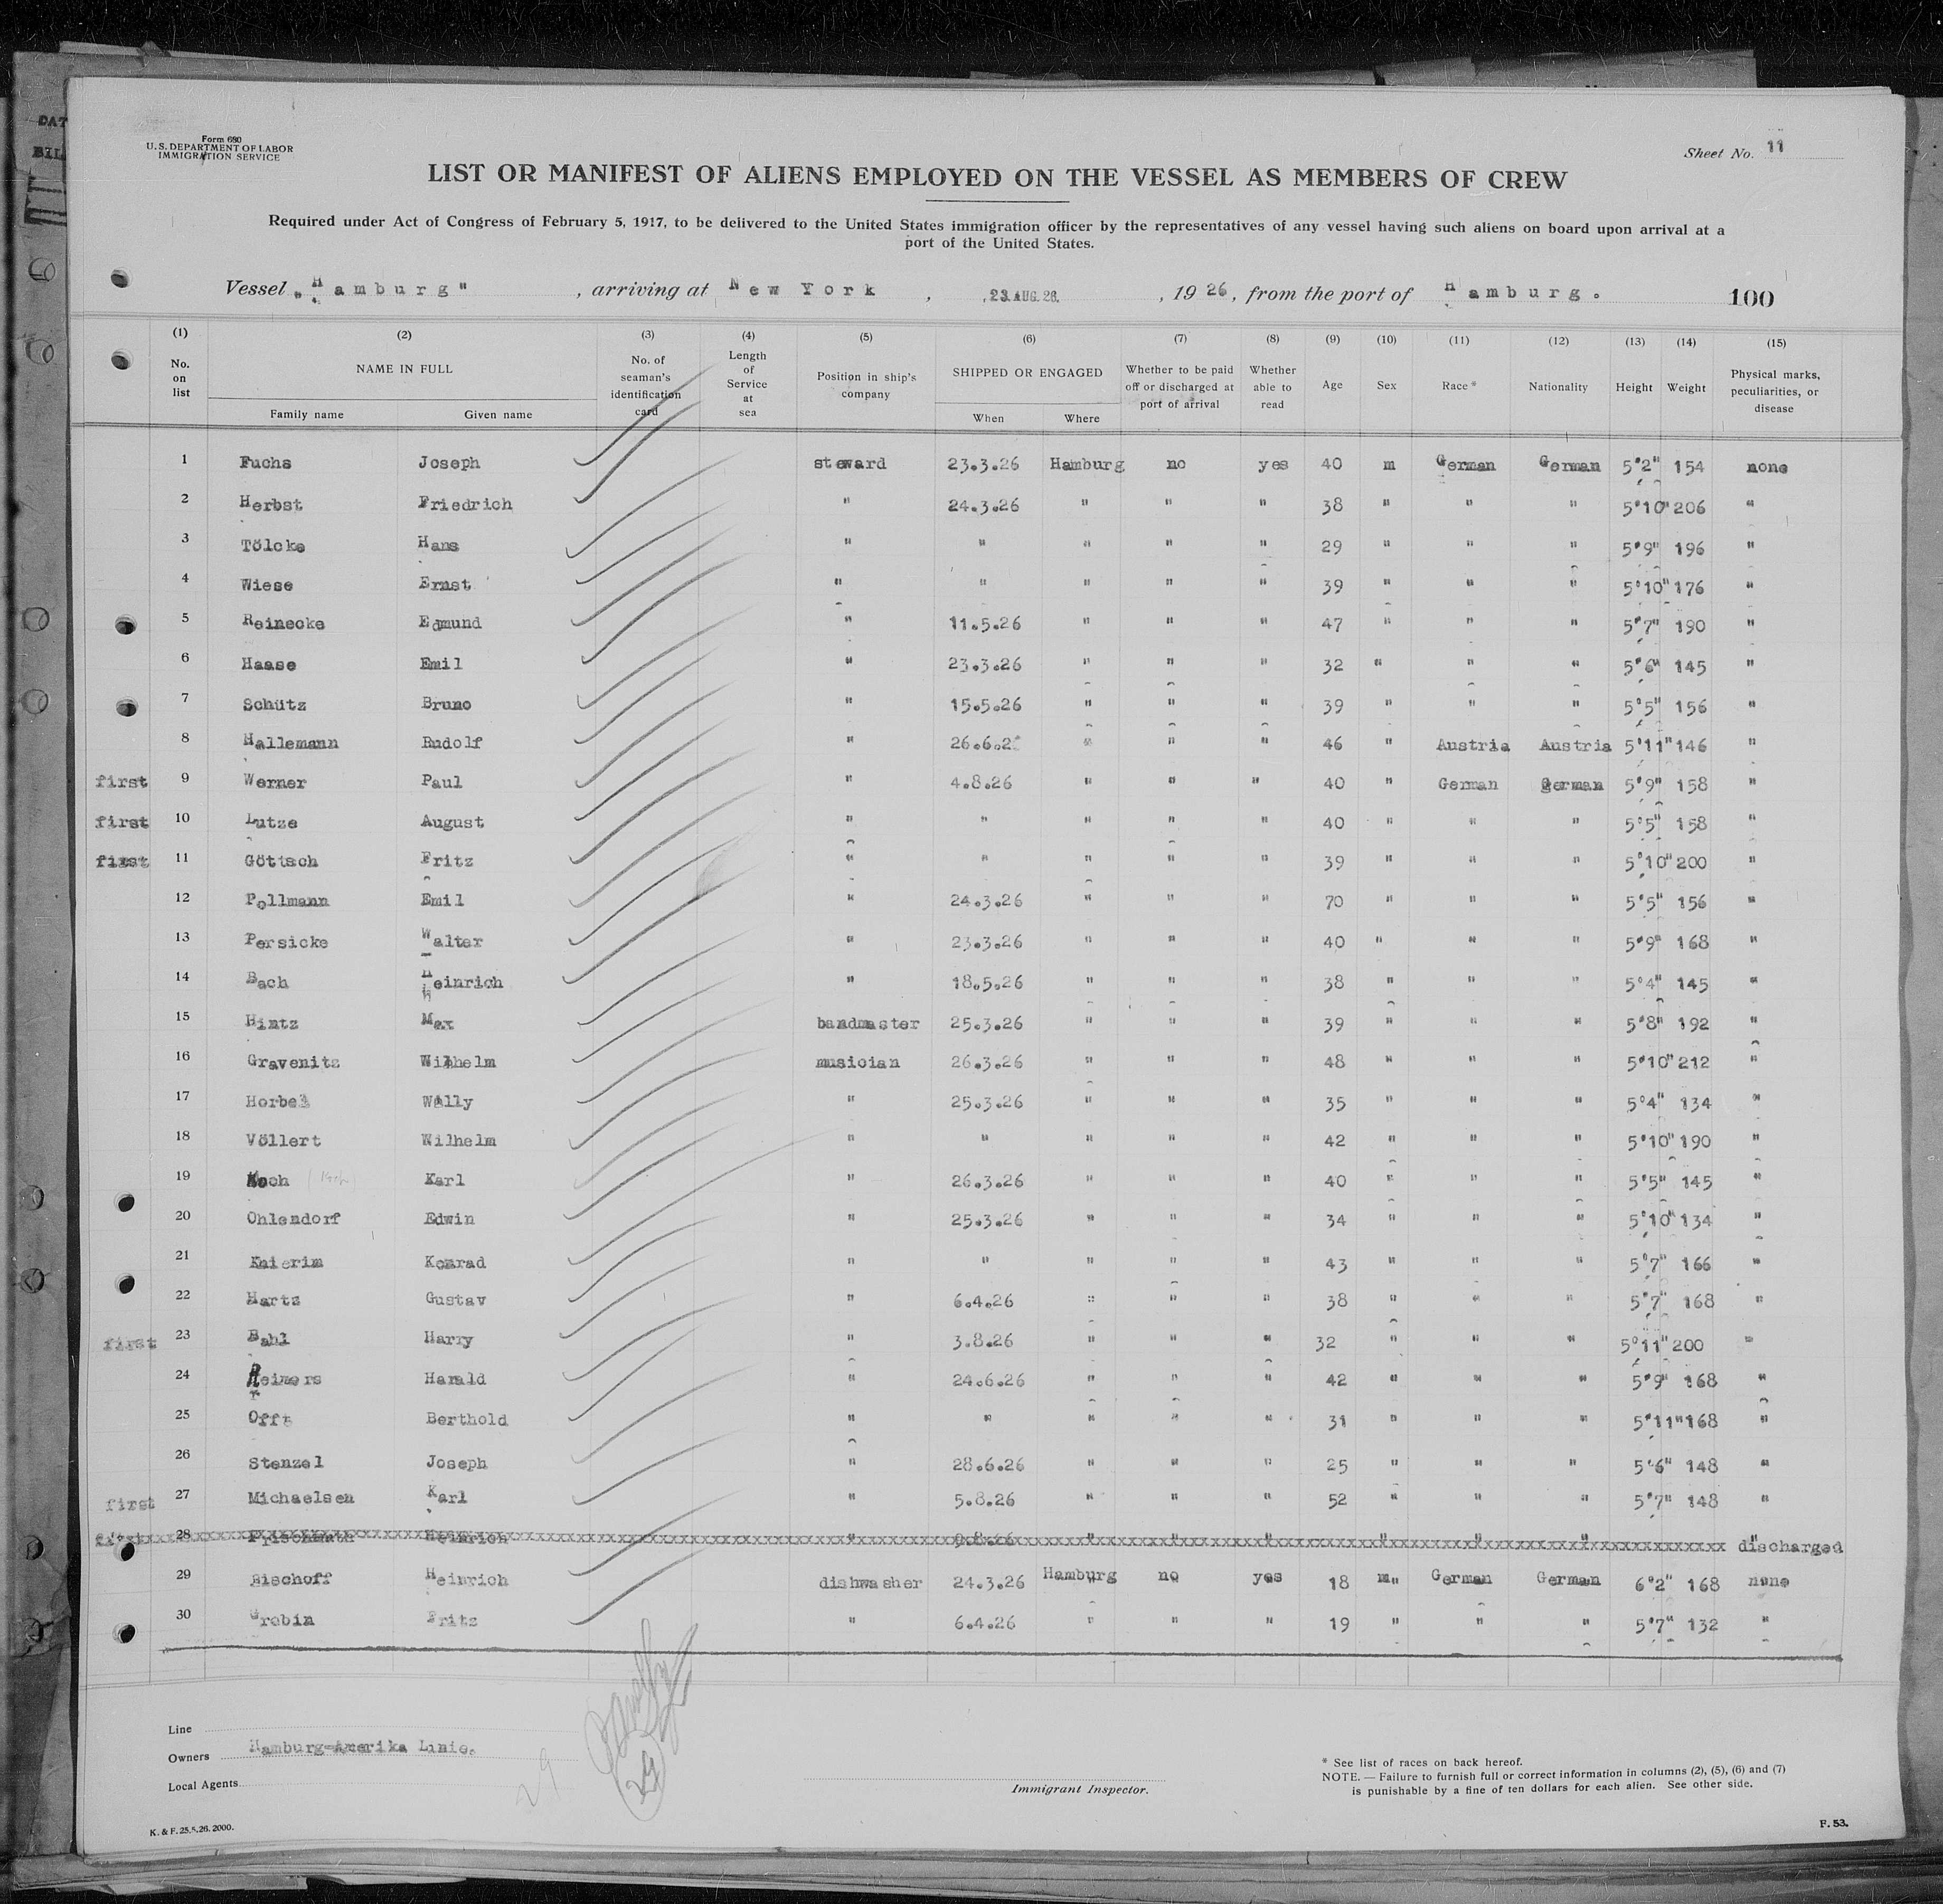 Form 680
U. S. DEPARTMENT OF LABOR
IMMIGRATION SERVICE
Sheet No. 11
LIST OR MANIFEST OF ALIENS EMPLOYED ON THE VESSEL AS MEMBERS OF CREW
Required under Act of Congress of February 5, 1917, to be delivered to the United States immigration officer by the representatives of any vessel having such aliens on board upon arrival at a
port of the United States.
Vessel „Hamburg" , arriving at New York , 23.AUG.26. , 1926, from the port of Hamburg. 100
(1) (2) (3) (4) (5) (6) (7) (8) (9) (10) (11) (12) (13) (14) (15)
No. on list NAME IN FULL Family name Given name No. of seaman's identification card Length of Service at sea Position in ship's company SHIPPED OR ENGAGED When Where Whether to be paid off or discharged at port of arrival Whether able to read Age Sex Race* Nationality Height Weight Physical marks, peculiarities, or disease
1 Fuchs Joseph steward 23.3.26 Hamburg no yes 40 m German German 5'2" 154 none
2 Herbst Friedrich " 24.3.26 " " " 38 " " " 5'10" 206 "
3 Tölcke Hans " " " " " 29 " " " 5'9" 196 "
4 Wiese Ernst " " " " " 39 " " " 5'10" 176 "
5 Reinecke Edmund " 11.5.26 " " " 47 " " " 5'7" 190 "
6 Haase Emil " 23.3.26 " " " 32 " " " 5'6" 145 "
7 Schütz Bruno " 15.5.26 " " " 39 " " " 5'5" 156 "
8 Hallemann Rudolf " 26.6.2 " " " 46 " Austria Austria 5'11" 146 "
first 9 Werner Paul " 4.8.26 " " " 40 " German German 5'9" 158 "
first 10 Lutze August " " " " " 40 " " " 5'5" 158 "
first 11 Göttsch Fritz " " " " " 39 " " " 5'10" 200 "
12 Pollmann Emil " 24.3.26 " " " 70 " " " 5'5" 156 "
13 Persicke Walter " 23.3.26 " " " 40 " " " 5'9" 168 "
14 Bach Heinrich " 18.5.26 " " " 38 " " " 5'4" 145 "
15 Hintz Max bandmaster 25.3.26 " " " 39 " " " 5'8" 192 "
16 Gravenitz Wilhelm musician 26.3.26 " " " 48 " " " 5'10" 212 "
17 Horbel Willy " 25.3.26 " " " 35 " " " 5'4" 134 "
18 Völlert Wilhelm " " " " " 42 " " " 5'10" 190 "
19 Koch Koch Karl " 26.3.26 " " " 40 " " " 5'5" 145 "
20 Ohlendorf Edwin " 25.3.26 " " " 34 " " " 5'10" 134 "
21 Knierim Konrad " " " " " 43 " " " 5'7" 166 "
22 Hartz Gustav " 6.4.26 " " " 38 " " " 5'7" 168 "
first 23 Bahl Harry " 3.8.26 " " " 32 " " " 5'11" 200 "
24 Reimers Harald " 24.6.26 " " " 42 " " " 5'9" 168 "
25 Offt Berthold " " " " " 31 " " " 5'11" 168 "
26 Stenzel Joseph " 28.6.26 " " " 25 " " " 5'6" 148 "
first 27 Michaelsen Karl " 5.8.26 " " " 52 " " " 5'7" 148 "
first 28 Heinrich " 9.8.26 " " " " " " " discharged
29 Bischoff Heinrich dishwasher 24.3.26 Hamburg no yes 18 m German German 6'2" 168 none
30 Grobin Fritz " 6.4.26 " " " 19 " " " 5'7" 132 "
Line
Owners Hamburg-Amerika Linie.
Local Agents
29
29
Immigrant Inspector.
* See list of races on back hereof.
NOTE. — Failure to furnish full or correct information in columns (2), (5), (6) and (7)
is punishable by a fine of ten dollars for each alien. See other side.
K. & F. 25.5.26. 2000.
F. 53.